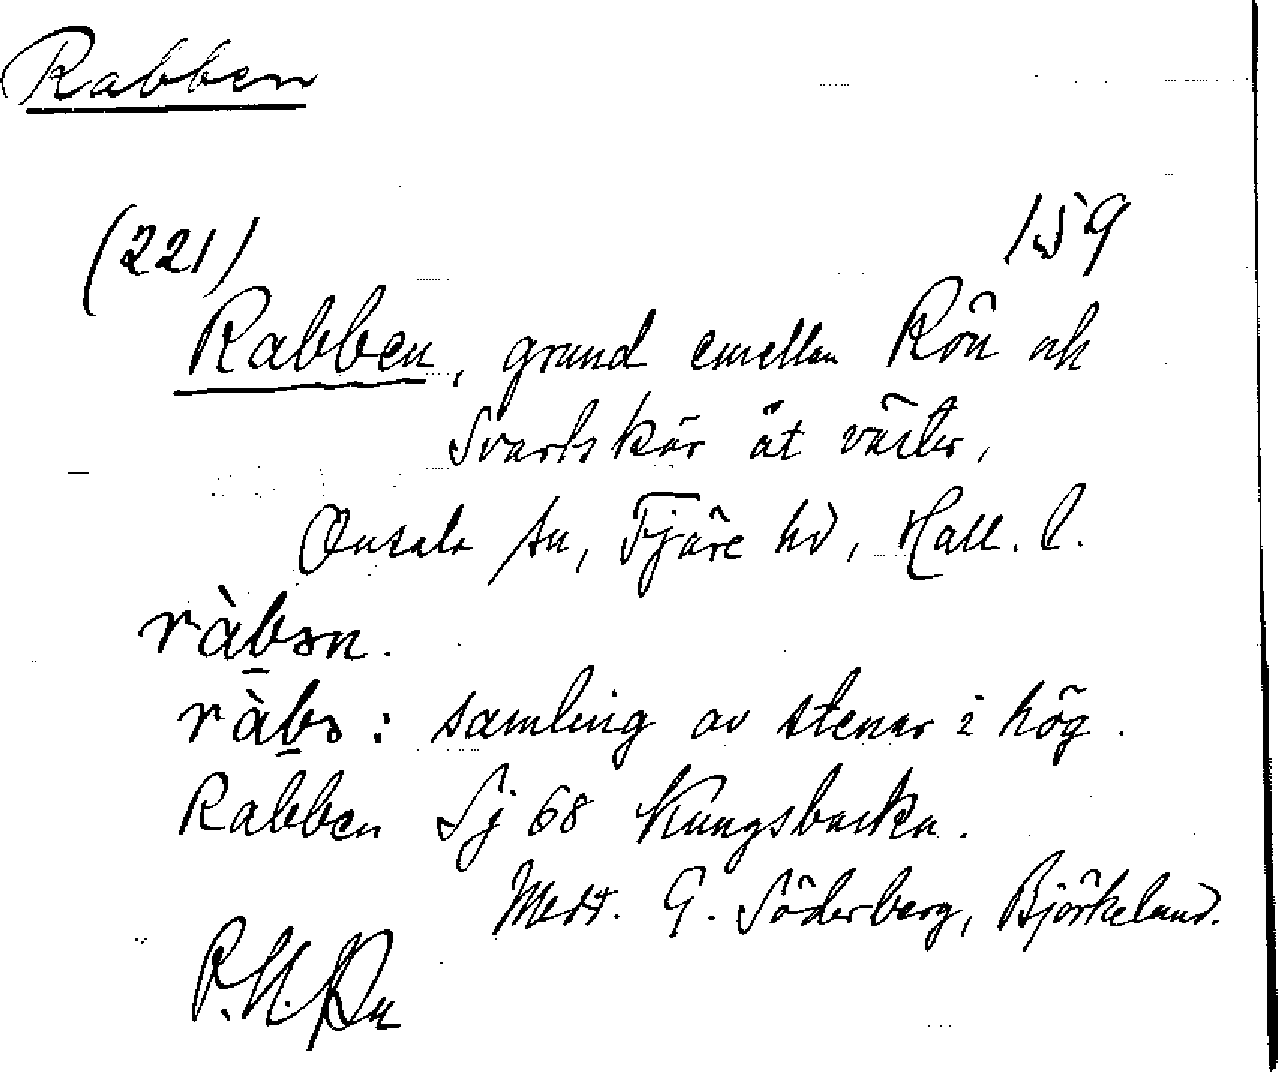 Rabben
(221) 159
Rabben, grund emellan Rön och
Svartskär åt väster,
Onsala sn, Fjäre hd, Hall. l.
ràb̲ən.
ràb̲ə: samling av stenar i hög.
Rabben Sj 68 Kungsbacka.
Medd. G. Söderberg, Björkelund.